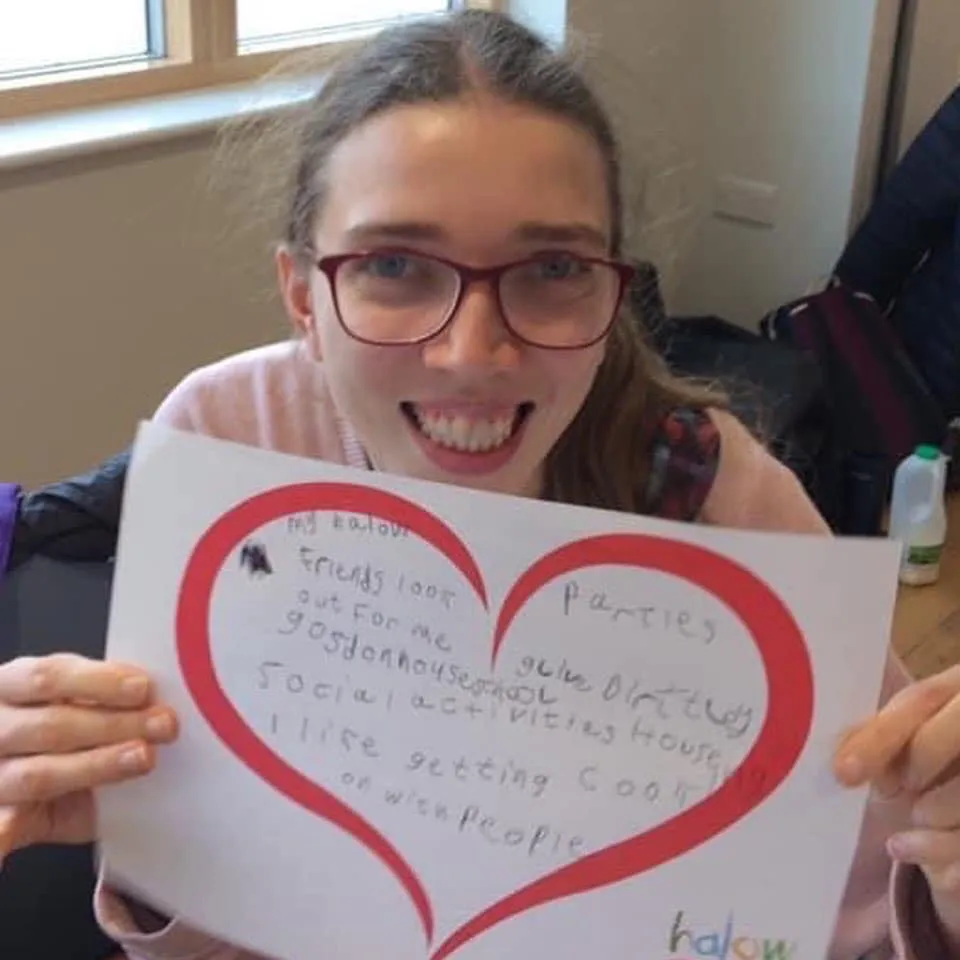 my halow
Friends look
out for me
gosdonhouseschool
social activities House
I like getting
on with People
Parties
going
Cook
halow